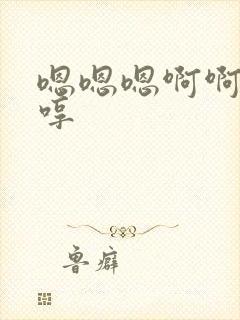 嗯嗯嗯啊啊
哼
鲁癖